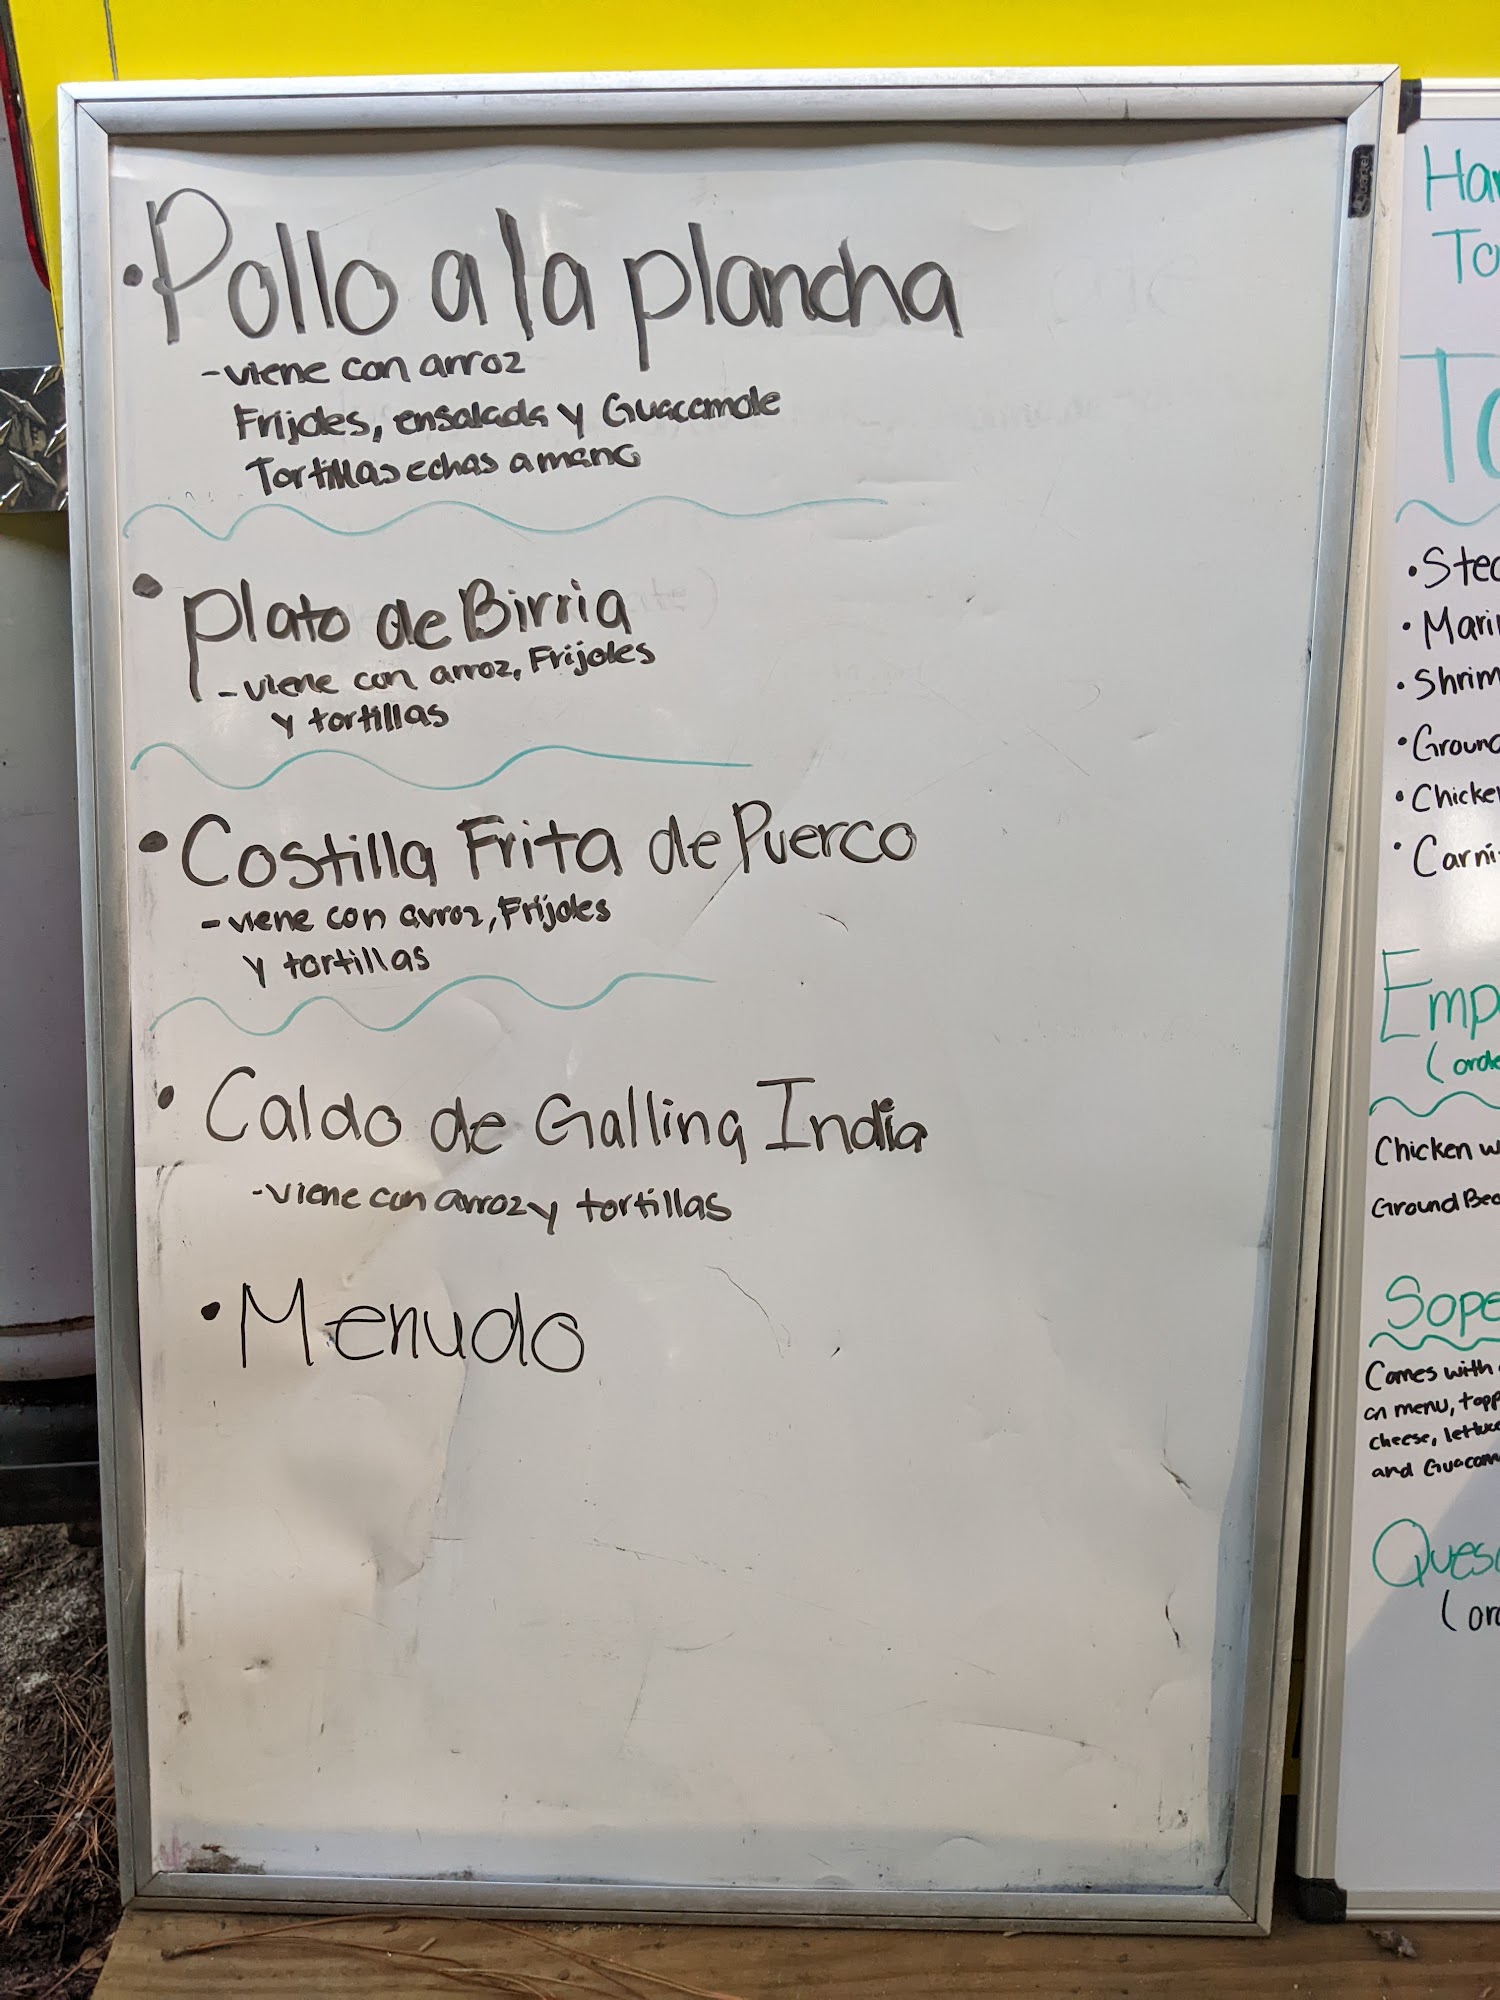 • Pollo a la plancha
- viene con arroz
Frijoles, ensalada y Guacamole
Tortillas echas a mano
• plato de Birria
- viene con arroz, Frijoles
y tortillas
• Costilla Frita de Puerco
- viene con arroz, Frijoles
y tortillas
• Caldo de Gallina India
- viene con arroz y tortillas
• Menudo
Har
To
Ta
• Stea
• Mari
• Shrim
• Ground
• Chicken
• Carni
Empa
(orde
Chicken w
Ground Bee
Sope
Comes with
on menu, topp
cheese, lettuce
and Guacam
Quesa
(ord